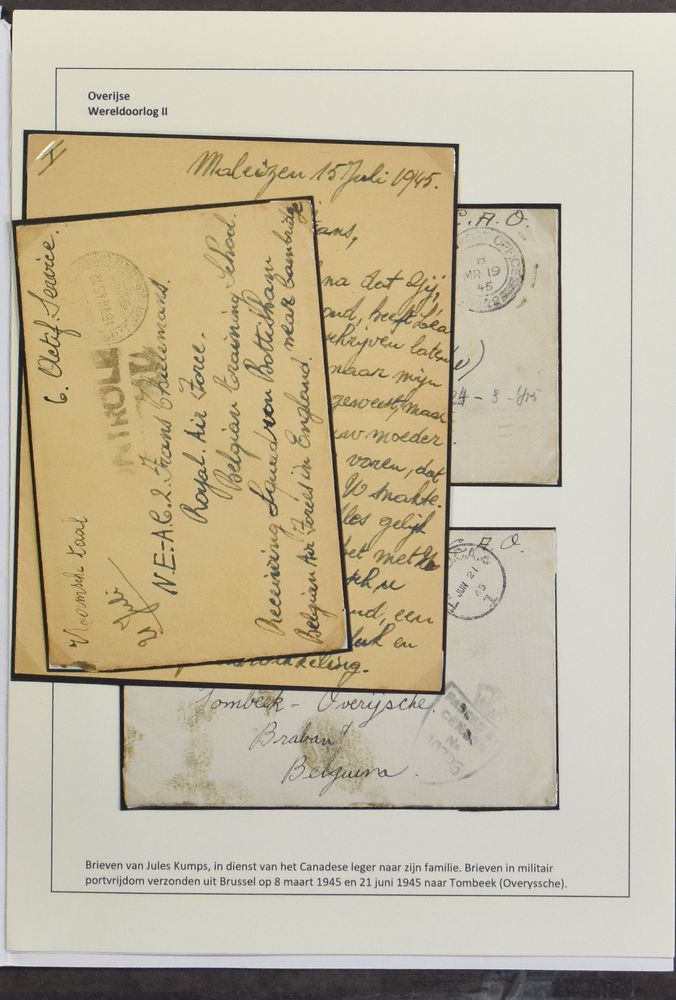 Overijse
Wereldoorlog II
Maleizen 15 Juli 1945.
ans,
na dat Gij,
oud, heeft
schrijven laten
naar mijn
geweest, maar
uw moeder
voren, dat
U maakte.
los gelijk
met
ch u
nd, een
en
deling.
6. Actif. Service.
NTROLE
Vlaamsche taal
N.E.-A.C.2. Frans Thielemans.
Royal. Air Force.
Belgian training School.
Receiving Squadron Bottisham
Belgian Air Forces in England. near Cambridge
C. A. O.
MR 19
45
24 - 3 - 45
C. A. O.
JUN 21
45
Tombeek - Overijsche.
Brabant
Belguim.
PASSED BY
CENSOR
No
Brieven van Jules Kumps, in dienst van het Canadese leger naar zijn familie. Brieven in militair
portvrijdom verzonden uit Brussel op 8 maart 1945 en 21 juni 1945 naar Tombeek (Overyssche).